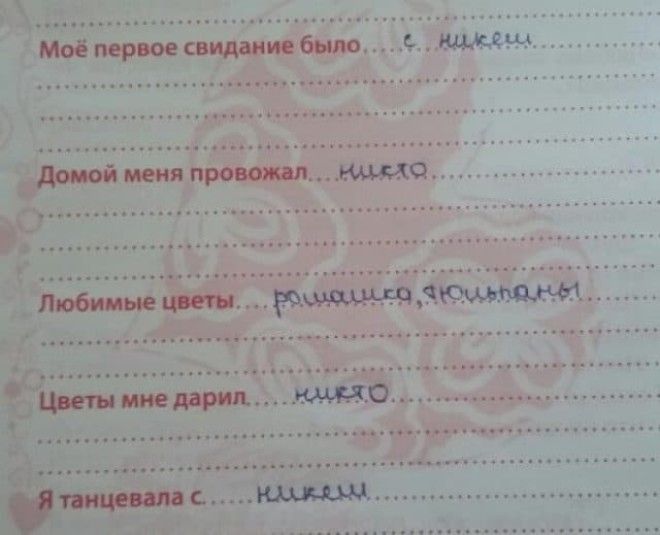 Моё первое свидание было.....с никеш
Домой меня провожал....никто
Любимые цветы....ромашка, тюльпаны
Цветы мне дарил......никто
Я танцевала с......никеш